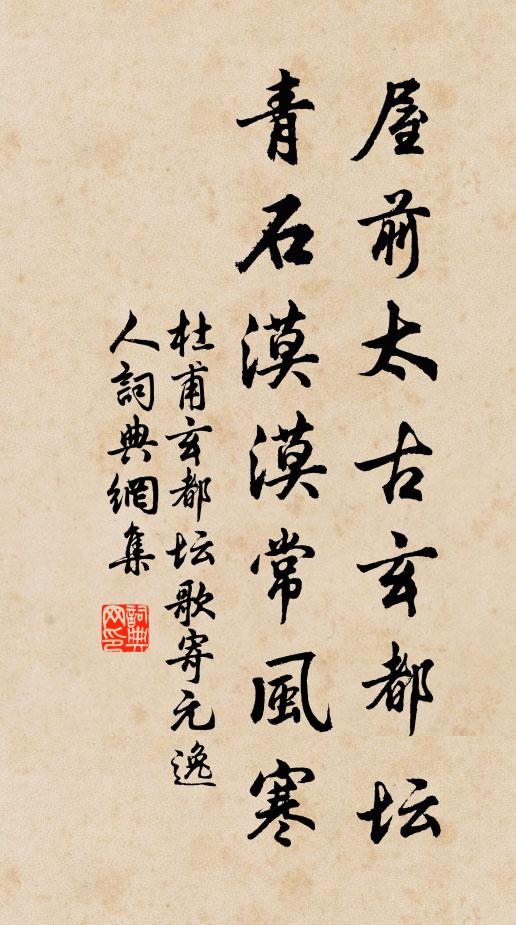 屋前太古玄都坛
青石漠漠常風寒
杜甫玄都坛歌寄元逸
人詞典網集
詞典網印